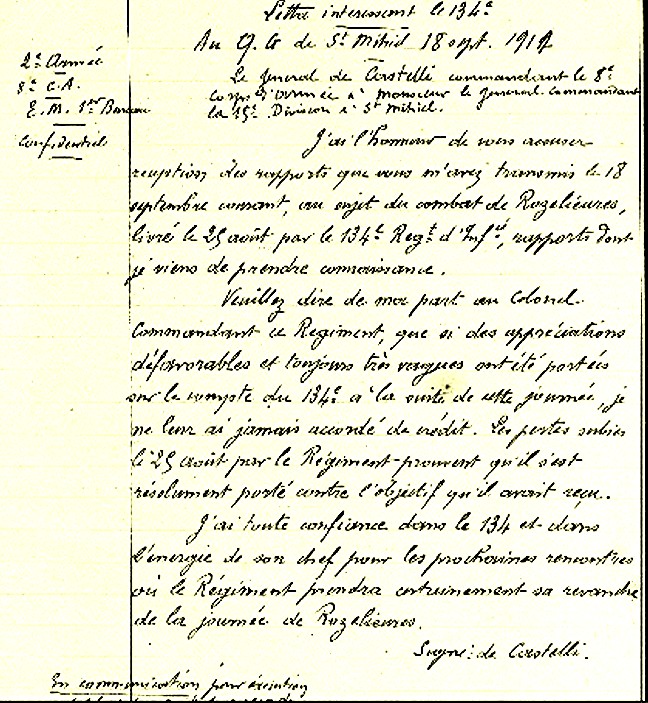 Lettre interessant le 134e
Au Q. G de St Mihiel 18 sept. 1914
2e Armée
8e C.A.
E. M. 1er Bureau
Confidentiel
Le General de Castelli commandant le 8e
Corps d'Armée à Monsieur le General Commandant
la 15e Division à St Mihiel.
J'ai l'honneur de vous accuser
reception, des rapports que vous m'avez transmis le 18
septembre courant, au sujet du combat de Rozelieures,
livré le 25 août par le 134e Regt d'Infie, rapports dont
je viens de prendre connaissance.
Veuillez dire de ma part au Colonel
Commandant ce Regiment, que si des appréciations
défavorables et toujours très vagues ont été portées
sur le compte du 134e à la suite de cette journée, je
ne leur ai jamais accordé de crédit. Les pertes subies
le 25 août par le Régiment prouvent qu'il s'est
résolument porté contre l'objectif qu'il avait reçu.
J'ai toute confiance dans le 134 et dans
l'énergie de son chef pour les prochaines rencontres
où le Régiment prendra certainement sa revanche
de la journée de Rozelieures.
Signé: de Castelli.
En communication pour exécution